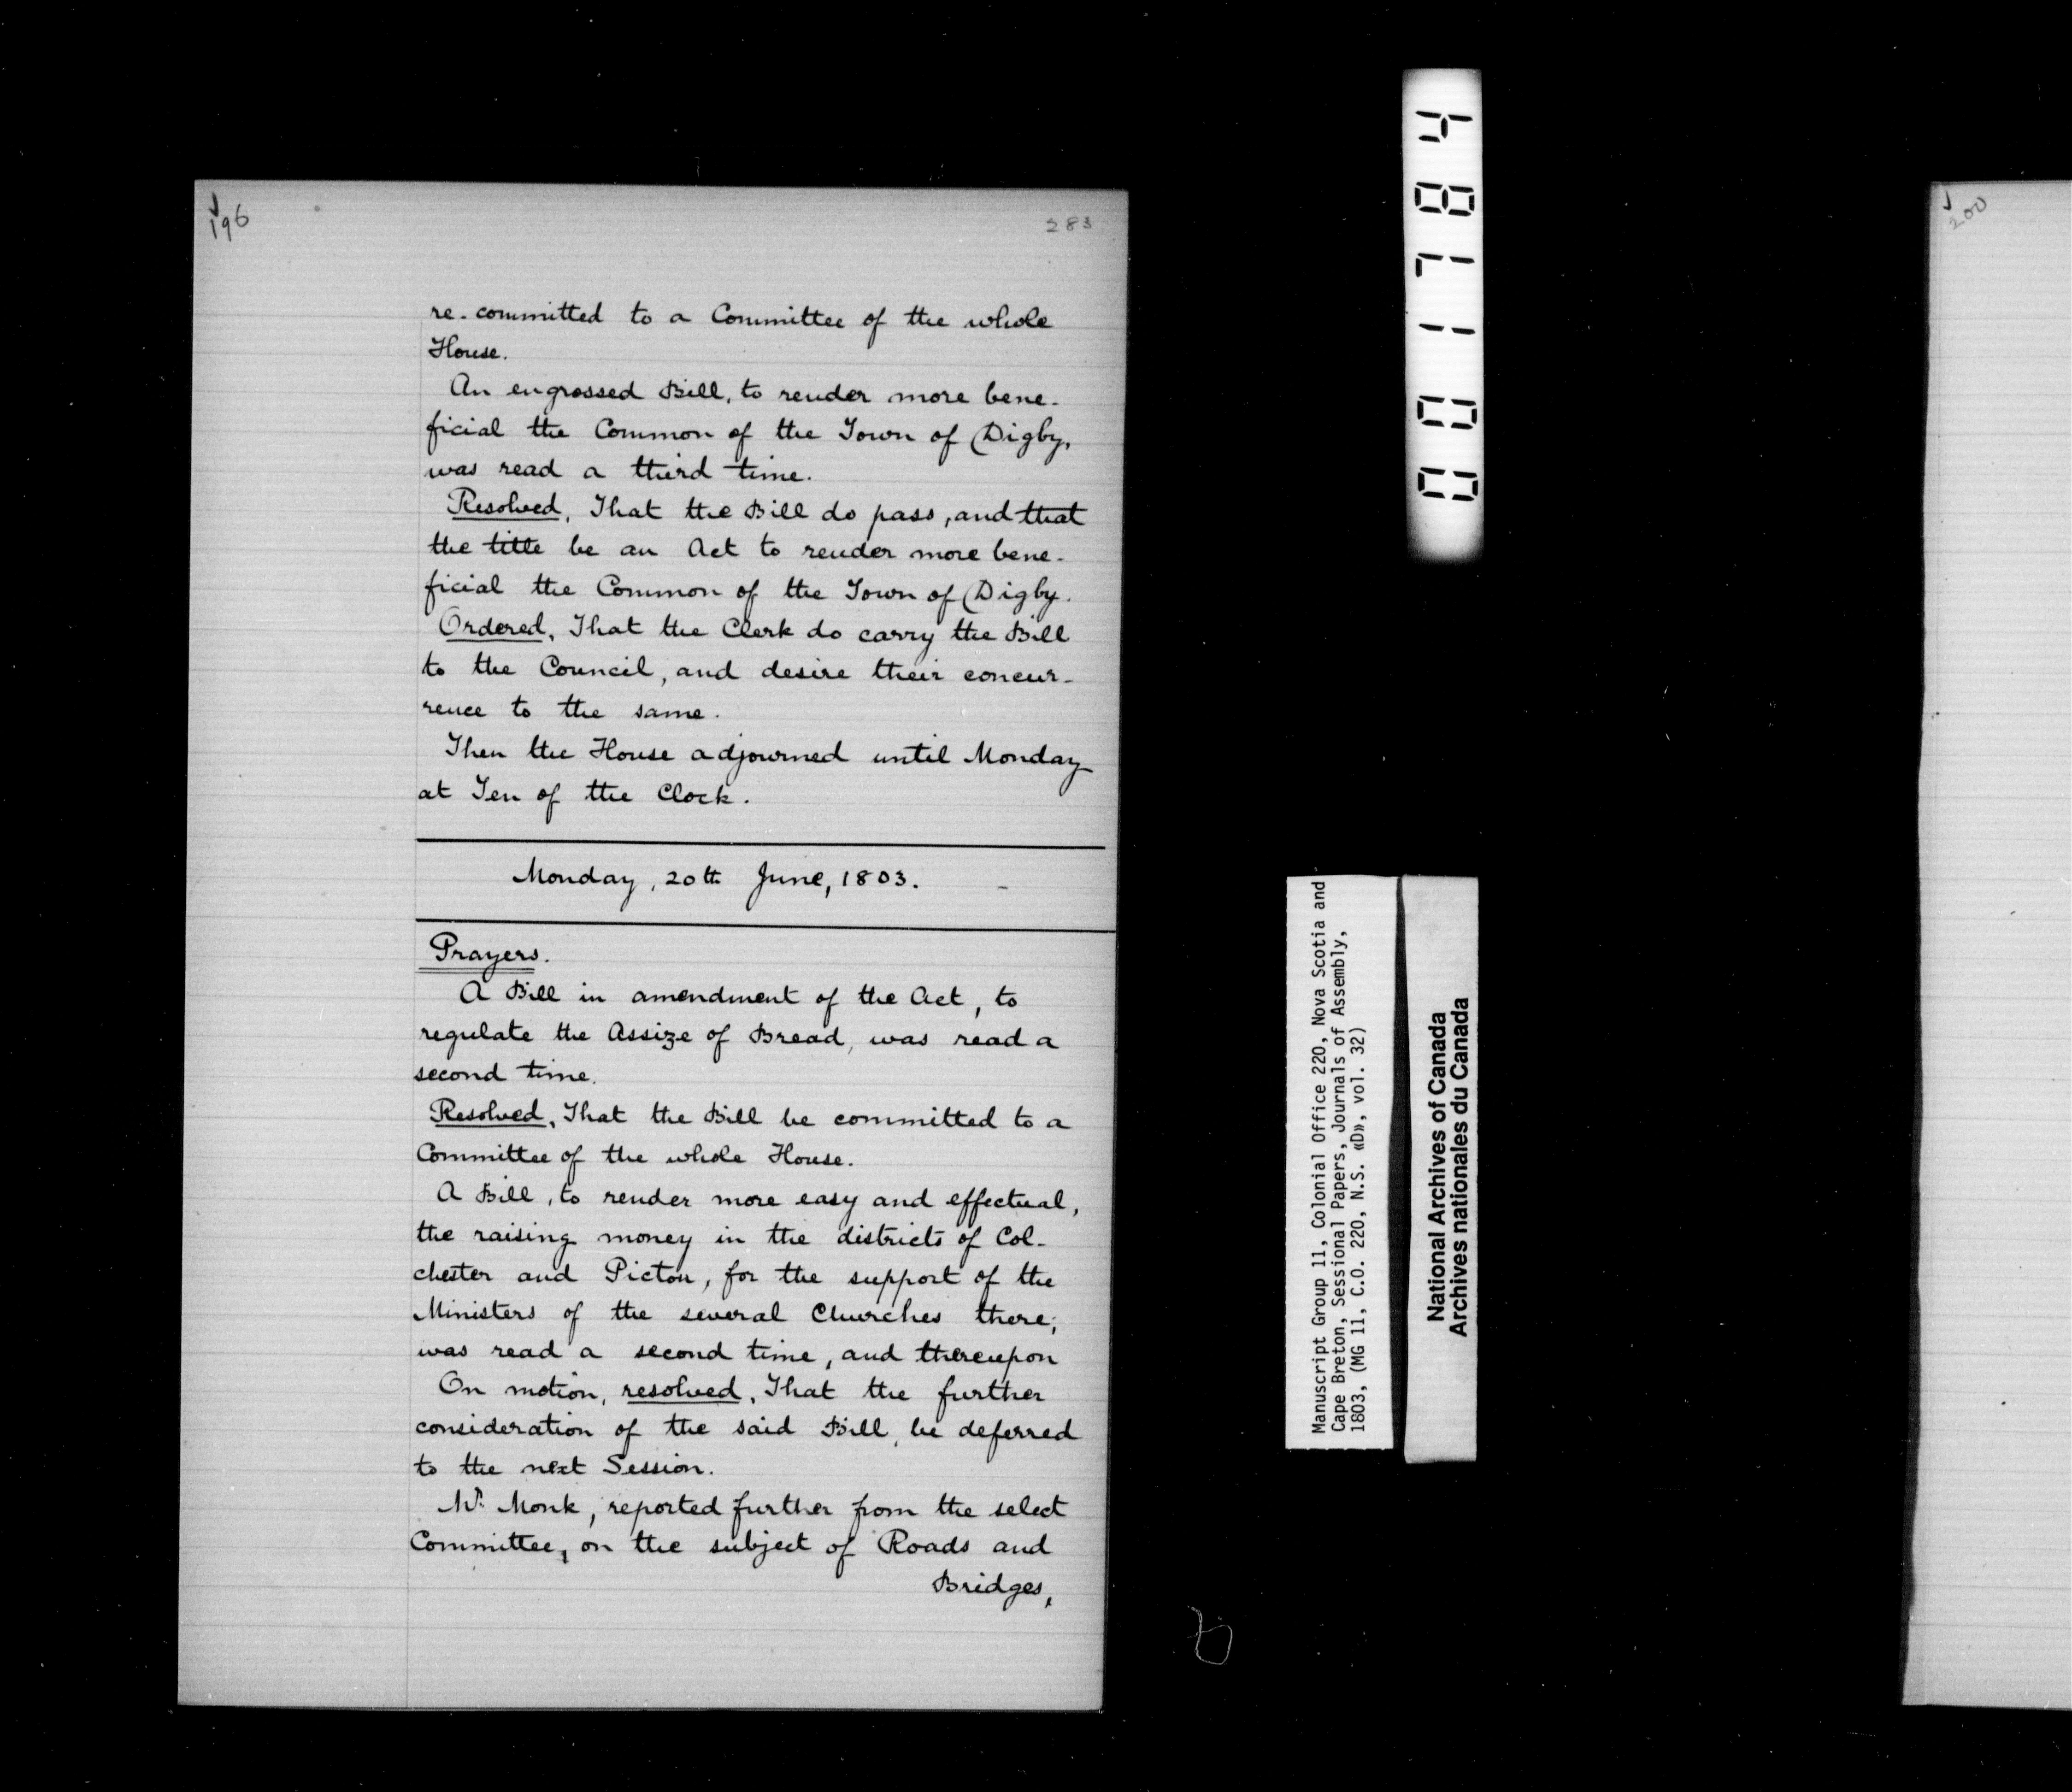 196
283
re-committed to a Committee of the whole
House.
An engrossed Bill, to render more bene-
ficial the Common of the Town of Digby,
was read a third time.
Resolved, That the Bill do pass, and that
the title be an Act to render more bene-
ficial the Common of the Town of Digby.
Ordered, That the Clerk do carry the Bill
to the Council, and desire their concur-
rence to the same.
Then the House adjourned until Monday
at Ten of the Clock.
Monday, 20th June, 1803.
Prayers.
A Bill in amendment of the Act, to
regulate the Assize of Bread, was read a
second time.
Resolved, That the Bill be committed to a
Committee of the whole House.
A Bill, to render more easy and effectual,
the raising money in the districts of Col-
chester and Picton, for the support of the
Ministers of the several Churches there;
was read a second time, and thereupon
On motion, resolved, That the further
consideration of the said Bill, be deferred
to the next Session.
Mr. Monk, reported further from the select
Committee, on the subject of Roads and
Bridges,
001784
Manuscript Group 11, Colonial Office 220, Nova Scotia and
Cape Breton, Sessional Papers, Journals of Assembly,
1803, (MG 11, C.O. 220, N.S. «D», vol. 32)
National Archives of Canada
Archives nationales du Canada
200